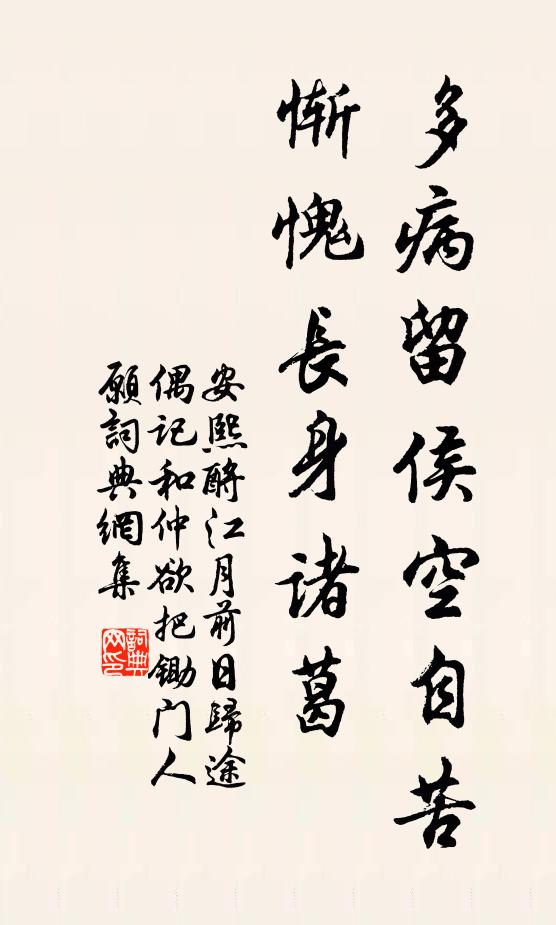 多病留侯空自苦
慚愧長身諸葛
安熙酹江月前日歸途
偶記和仲欲把鋤門人
願詞典網集
詞典網印